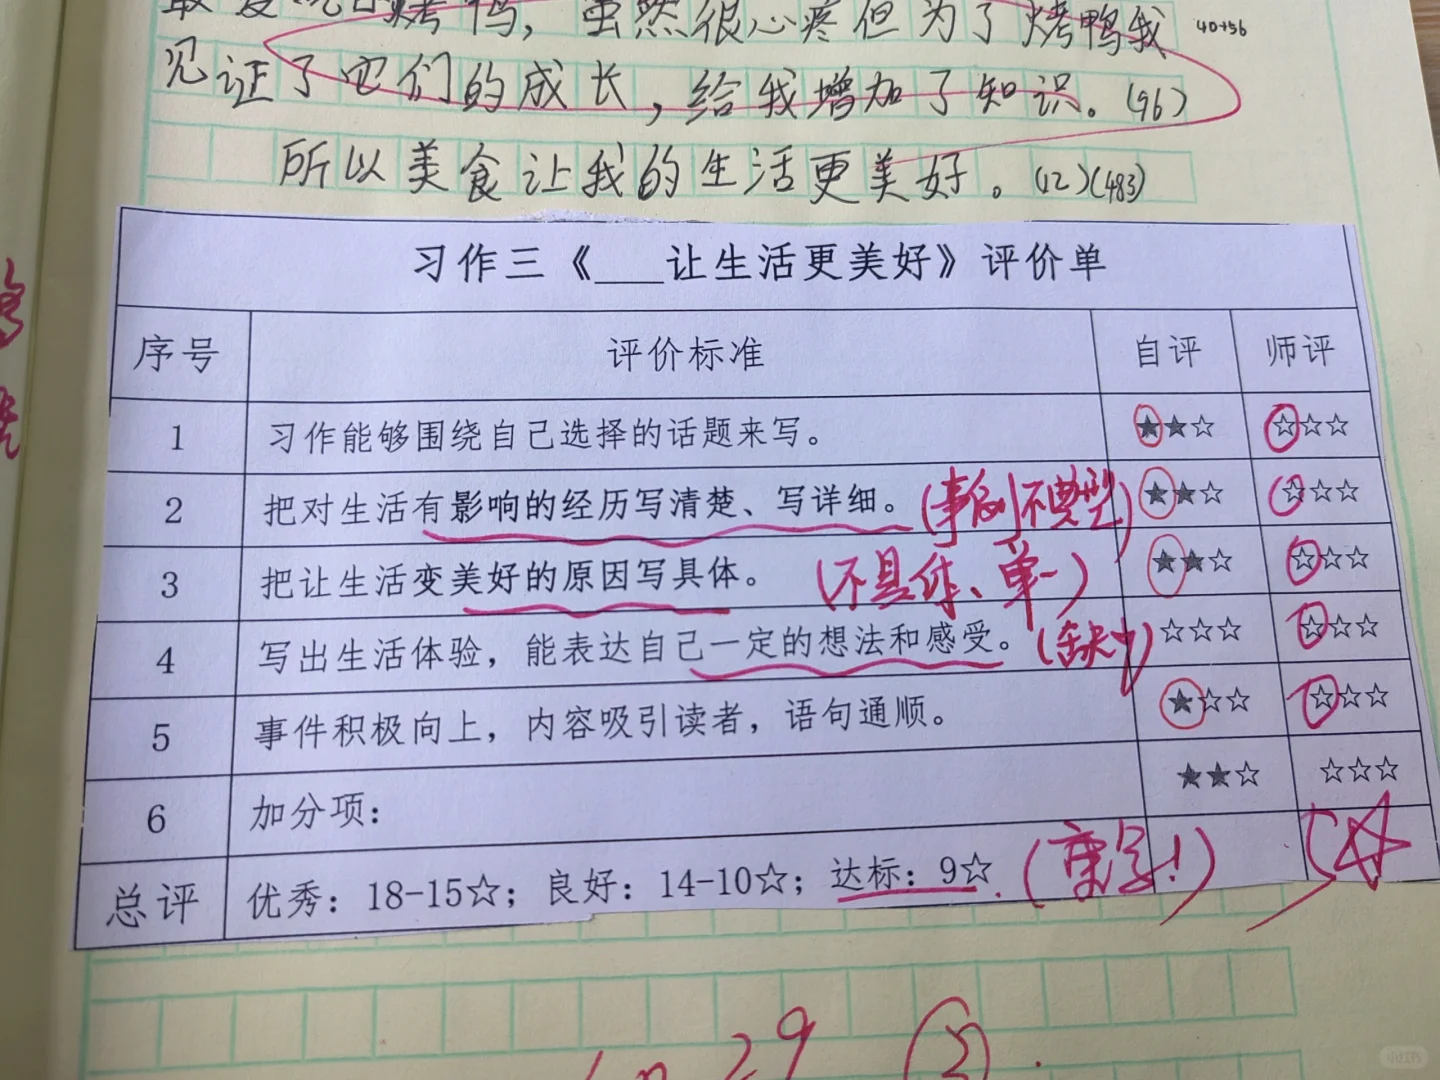 最爱吃的烤鸭，虽然很心疼但为了烤鸭我 40+56
见证了它们的成长，给我增加了知识。(96)
所以美食让我的生活更美好。(12)(483)
习作三《___让生活更美好》评价单
序号 评价标准 自评 师评
1 习作能够围绕自己选择的话题来写。 ★★☆ ☆☆☆
2 把对生活有影响的经历写清楚、写详细。(事例不典型) ★★☆ ☆☆☆
3 把让生活变美好的原因写具体。(不具体、单一) ★★☆ ☆☆☆
4 写出生活体验，能表达自己一定的想法和感受。(缺少) ☆☆☆ ☆☆☆
5 事件积极向上，内容吸引读者，语句通顺。 ★☆☆ ☆☆☆
6 加分项： ★★☆ ☆☆☆
总评 优秀：18-15☆；良好：14-10☆；达标：9☆ (重写！) 5☆
29 ②
小红书